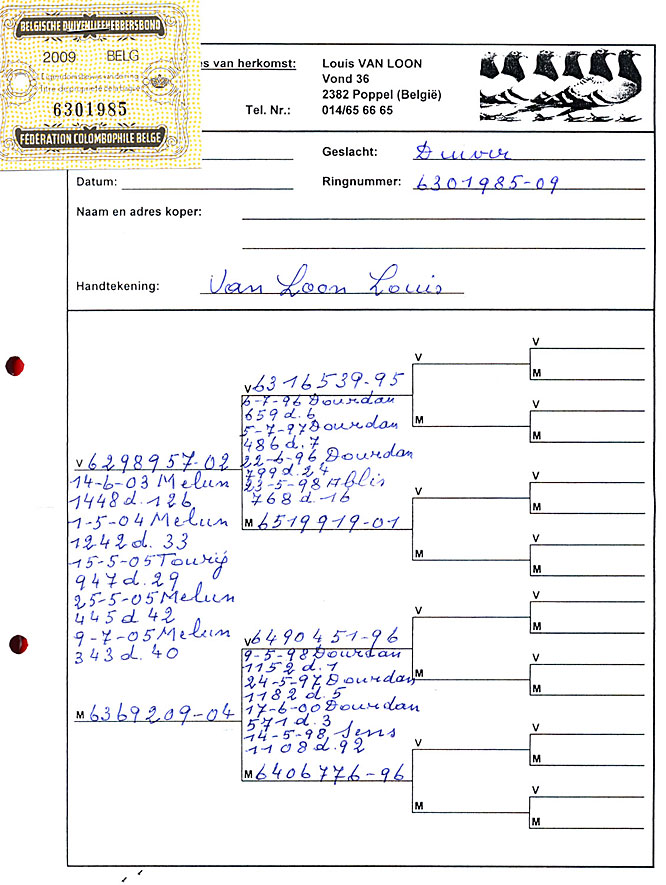 BELGISCHE DUIVENLIEFHEBBERSBOND
2009 BELG
Titre de propriété de la bague
6301985
FÉDÉRATION COLOMBOPHILE BELGE
s van herkomst:
Louis VAN LOON
Vond 36
2382 Poppel (België)
Tel. Nr.: 014/65 66 65
Geslacht:
Datum:
Ringnummer: 6301985-09
Naam en adres koper:
Handtekening: Van Loon Louis
V 6298957-02
14-6-03 Melun
1448 d. 126
1-5-04 Melun
1242 d. 33
15-5-05 Toury
947 d. 29
25-5-05 Melun
445 d 42
9-7-05 Melun
343 d. 40
M 6369209-04
V 6316539-95
6-7-96 Dourdan
659 d. 6
5-7-97 Dourdan
486 d. 7
22-6-96 Dourdan
799 d. 24
23-5-98 Ablis
768 d. 16
M 6519919-01
V 6490451-96
9-5-98 Dourdan
1152 d. 1
24-5-97 Dourdan
1182 d. 5
17-6-00 Dourdan
571 d. 3
14-5-98 Sens
1108 d. 92
M 6406776-96
V
M
V
M
V
M
V
M
V
M
V
M
V
M
V
M
V
M
V
M
V
M
V
M